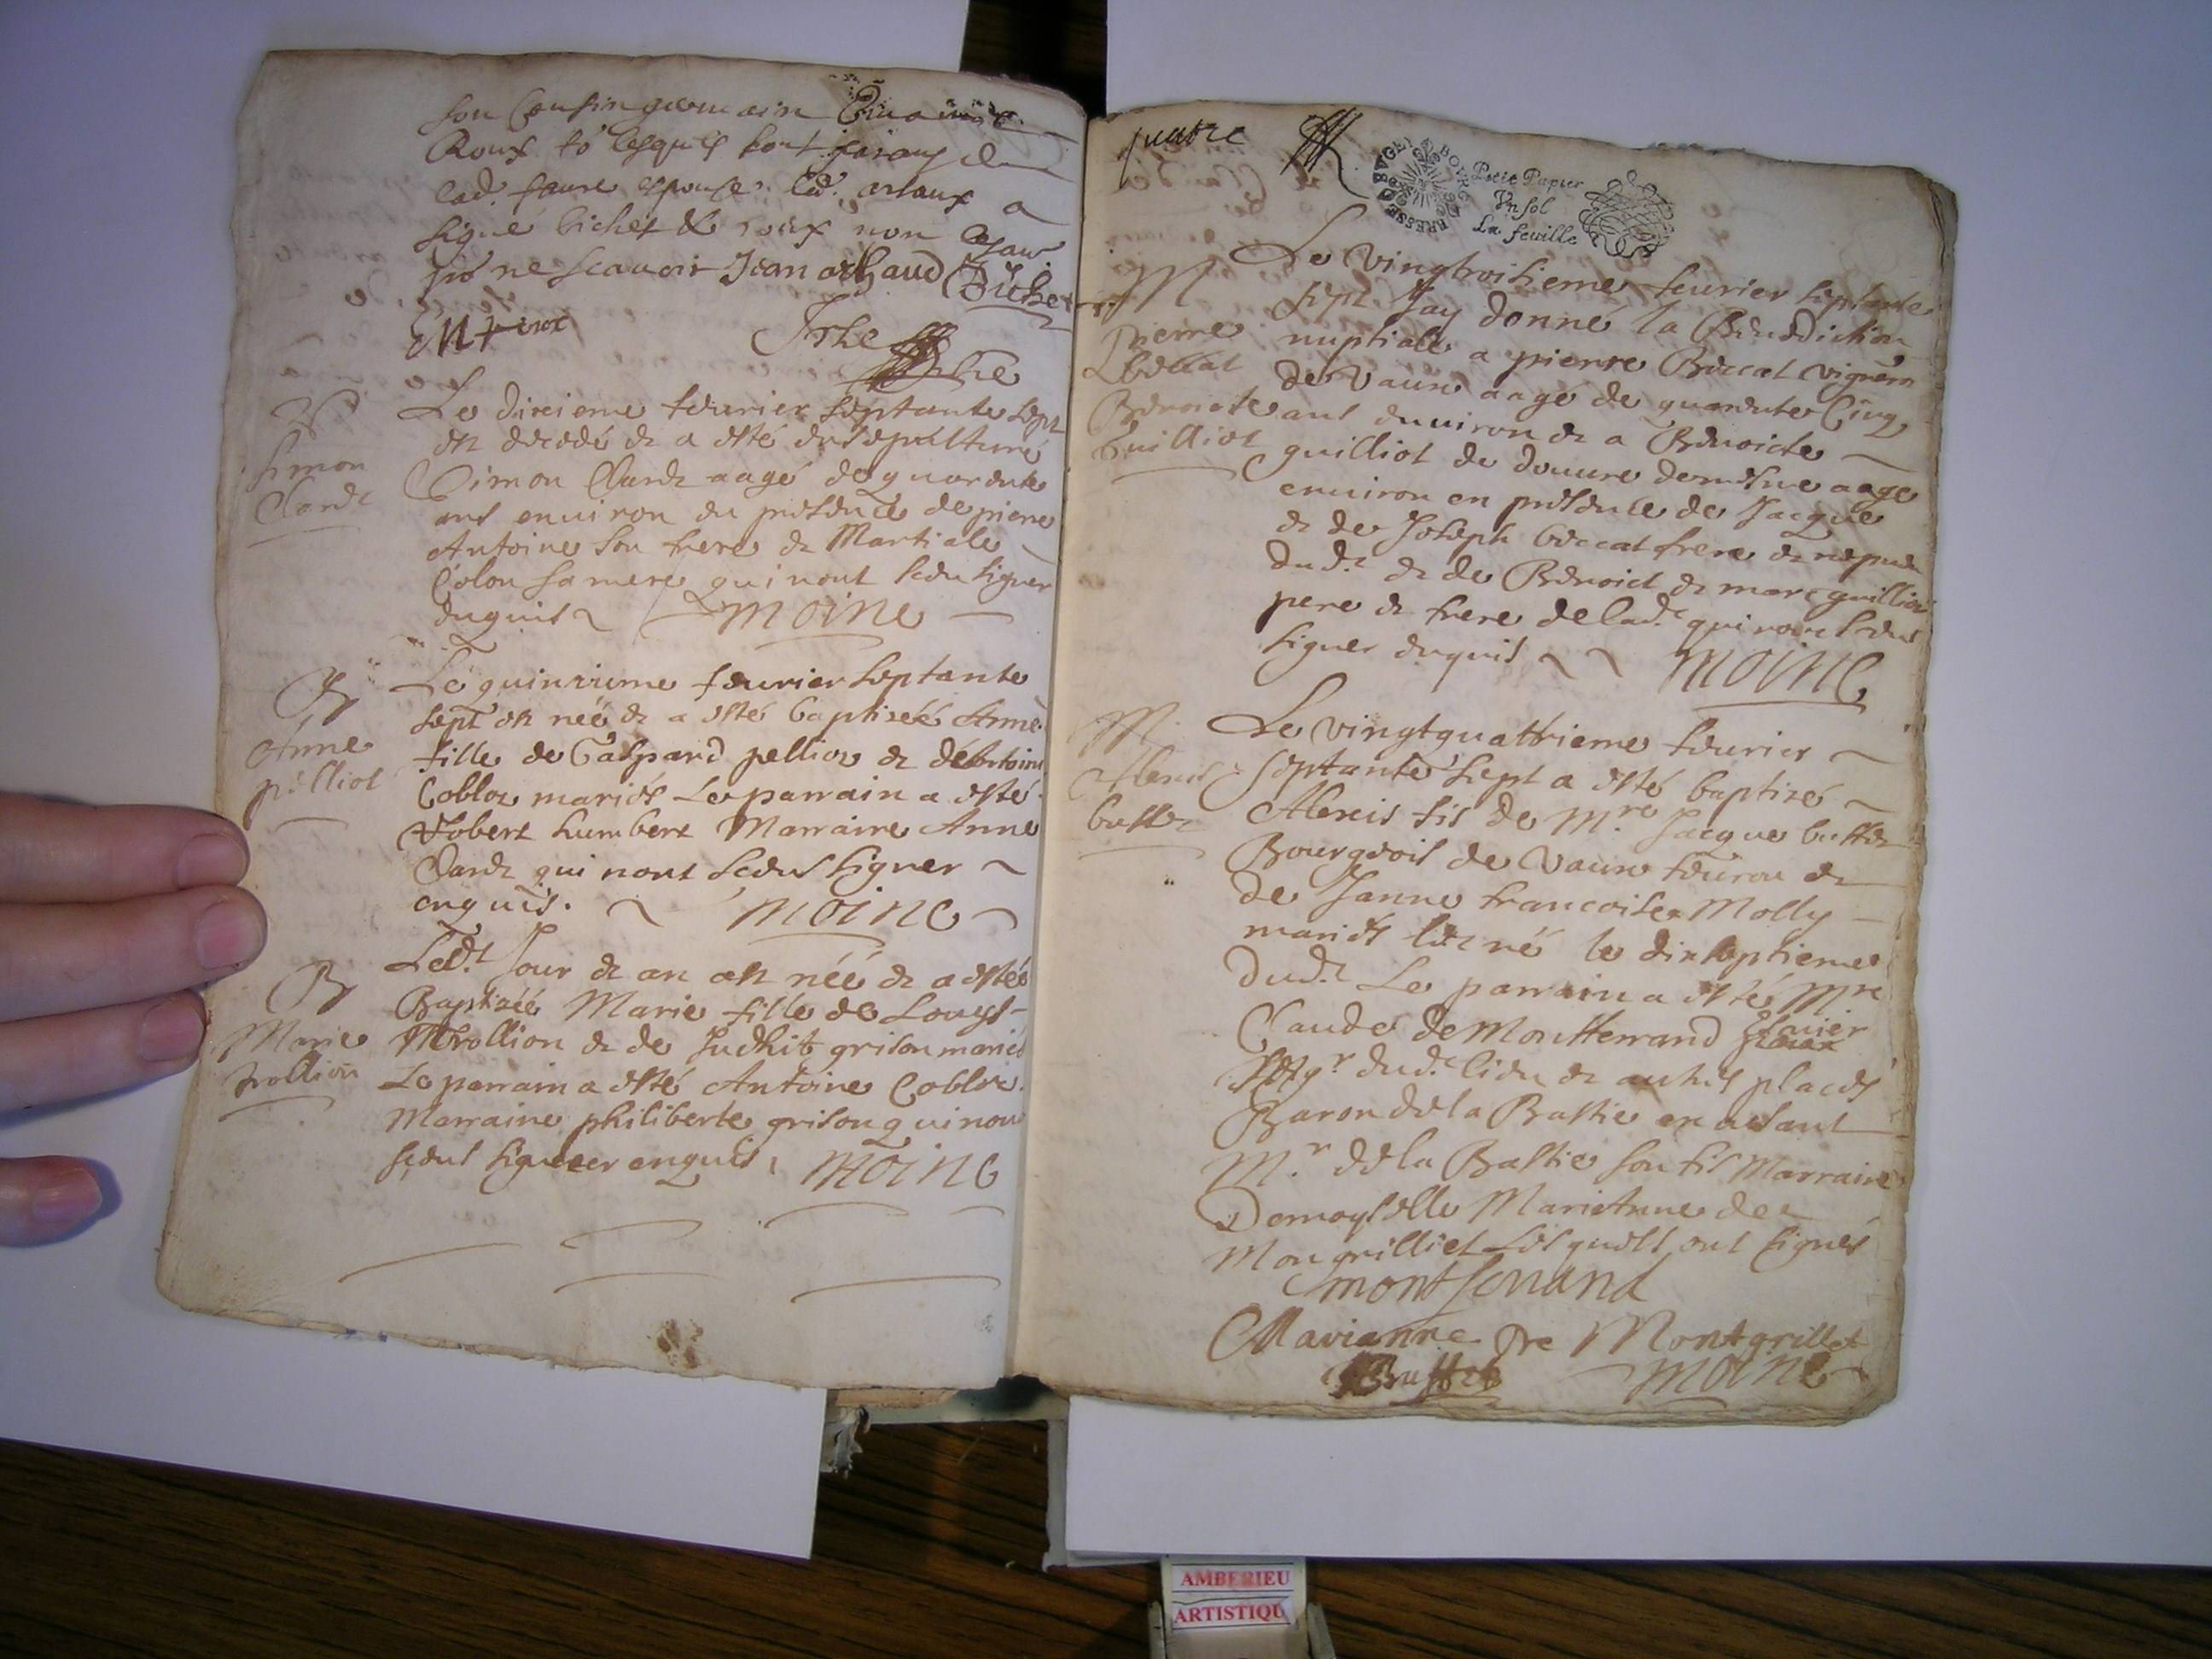 son Cousin germain
Roux to lesquels sont
lad. faure espouse led. arlaux a
signé bichet & roux non lesaur
po ne scauoir Jean arthaud Bichet
S
Simon
Clardt
Le dixieme feurier septante sept
est decedé & a esté ensepulturé
Simon Clardt aagé de quarante
ans enuiron en presence de piere
Antoine son frere & Martiale
Colon sa mere qui nont sceu signer
enquis moine
B
Anne
pelliot
Le quinzieme feurier septante
sept est neé & a esté baptizeé Anne
fille de Gaspard pelliot & de Antoine
Coblot mariés Le parrain a esté
humbert Marraine Anne
Clardt qui nont sceus signer
enquis. moine
B
Marie
trollion
Led.t Jour & an est néé & a esté
Baptizéé Marie fille de Louys
trollion & de Judhit grison mariés
Le parrain a esté Antoine Coblot
Marraine philiberte grison qui nont
sceus signer enquis, moine
quatre
BRESSE BVGEY BOVRG
Petit Papier
Vn sol
La feuille
M
Pierre
Boccat
Benoicte
Guilliot
Le vingtroisieme feurier septante
sept Jay donné la Benediction
nuptiale a pierre Boccat vigneron
de Vaux aagé de quarante Cinq
ans enuiron & a Benoicte
guilliot de douure de mesme aage
enuiron en presence de Jacque
& de Joseph boccat frere & nepueu
dud.t & de Benoict & marc guilliot
pere & frere de lad.te qui nont sceus
signer enquis moine
Alexis
buffet
Le vingtquattrieme feurier
septante sept a esté baptizé
Alexis fis de M.re Jacque buffet
Bourgeois de Vaux feurou &
de Janne francoise Molly
mariés né le dixseptieme
dud.t Le parrain a esté Mre
Claude de Montferrand
Seig.r dud.t lieu & autres places
Baron de la Bastie en absant
M.r de la Bastie son fis Marraine
Demoyselle Marieanne de
Mongrilliet Lesquels ont signés
montferrand
Marianne De Montgrillet
Buffet moine
AMBERIEU
ARTISTIQU